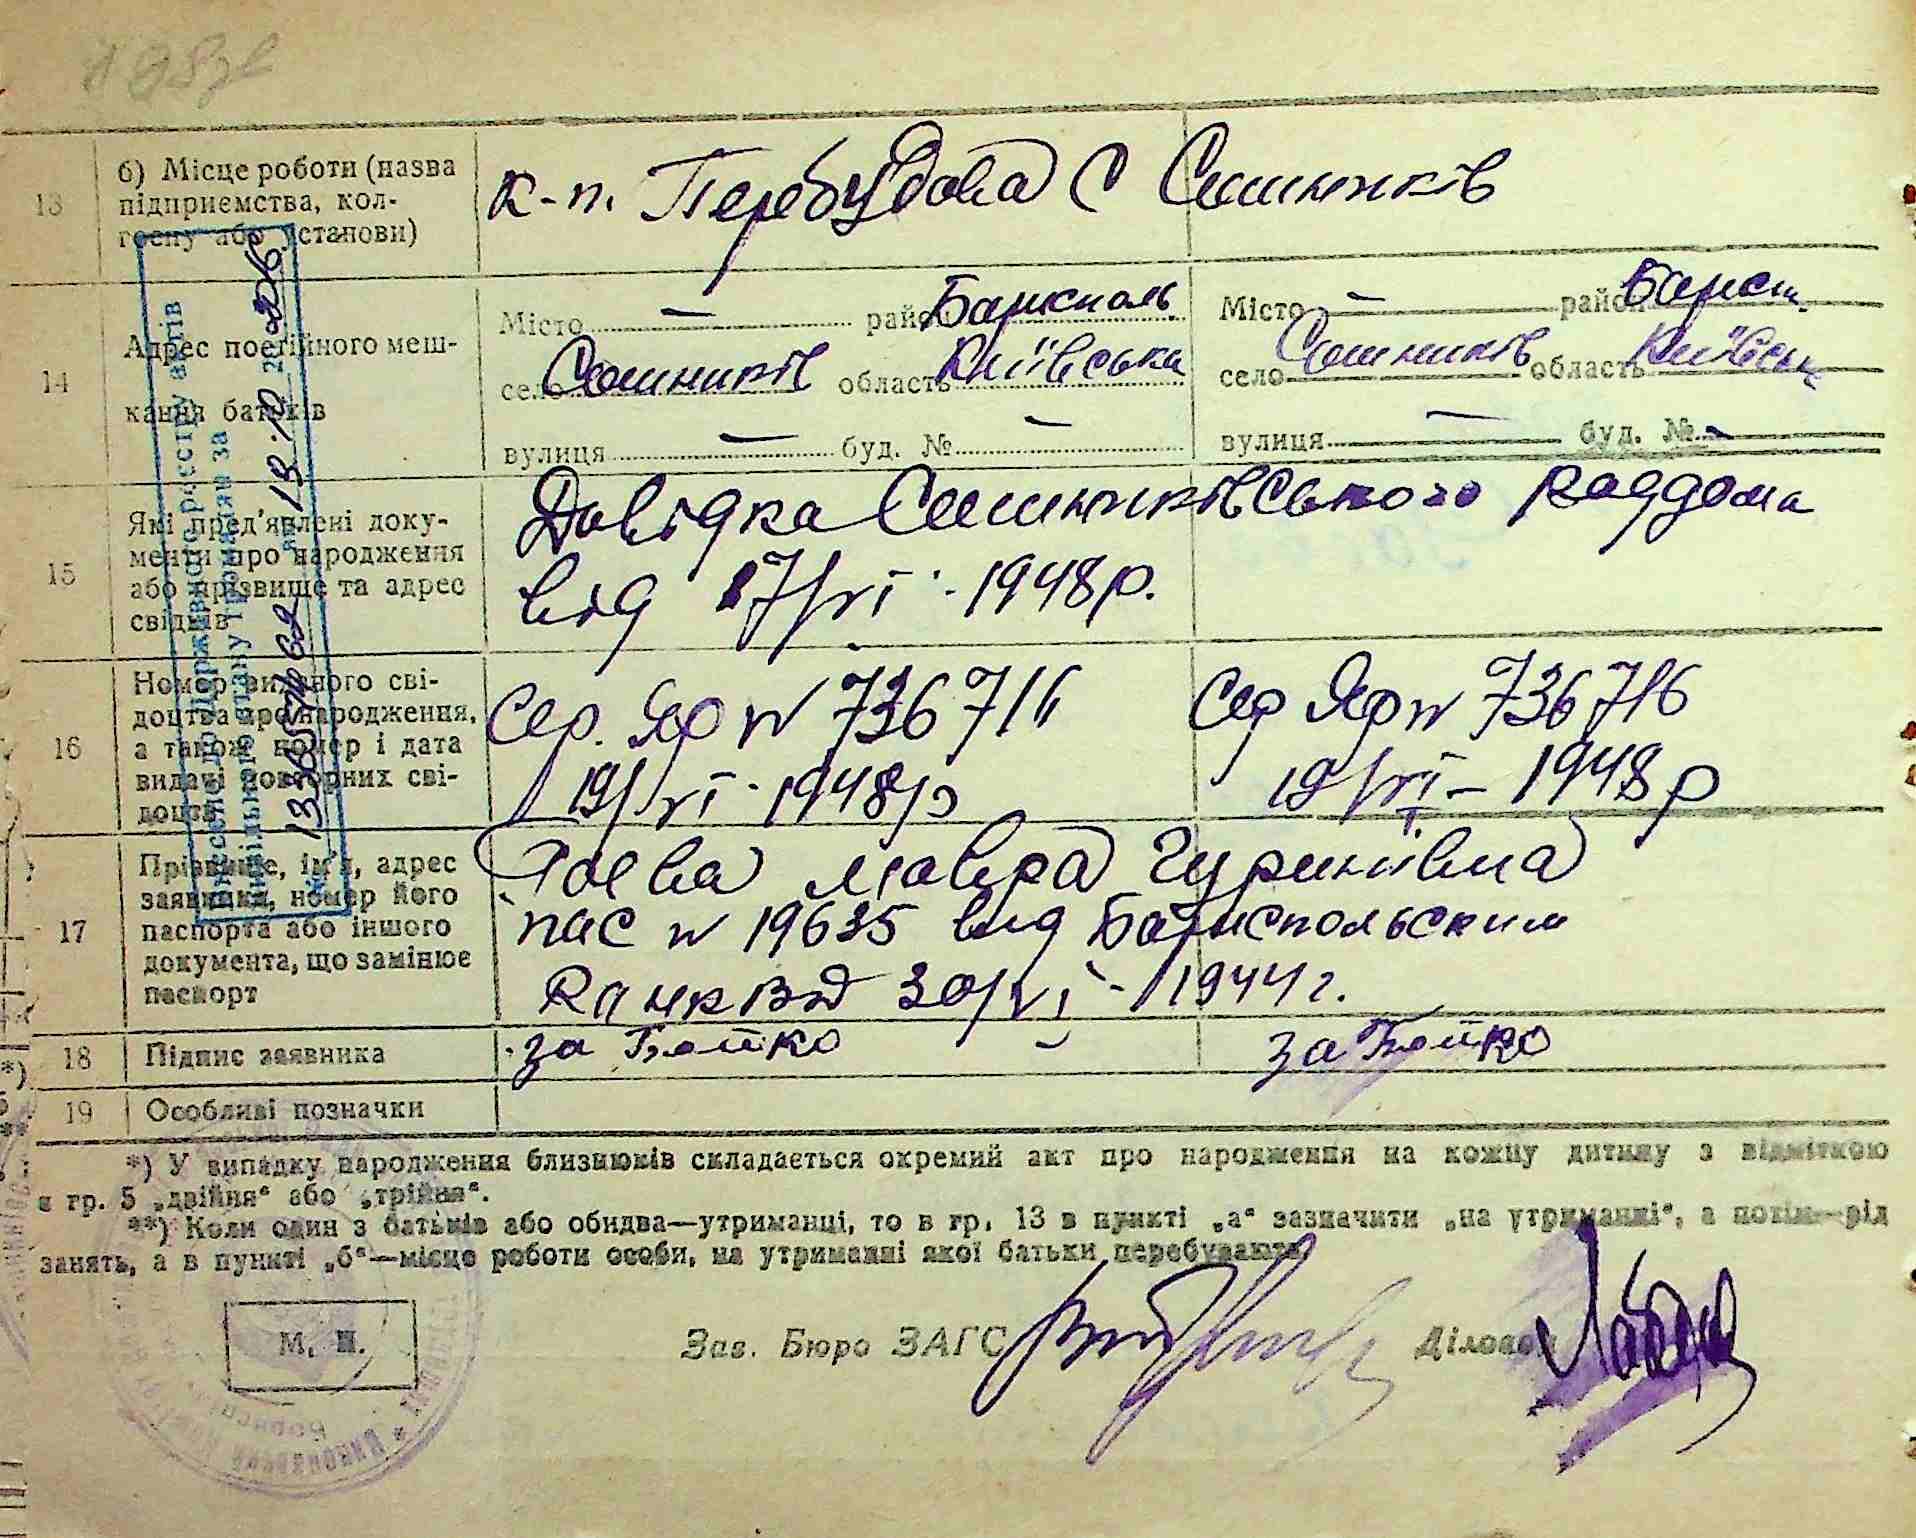 13
б) Місце роботи (назва
підприємства, кол-
госпу або установи)
к-п. Перебудова с Сошників
14
Адрес постійного меш-
кання батьків
Місто — район Бориспіль
село Сошників область Київська
вулиця — буд. № —
Місто — район Борисп.
село Сошників область Київськ
вулиця — буд. № —
15
Які пред'явлені доку-
менти про народження
або прізвище та адрес
свідків
Довідка Сошниківського роддома
від 17/VI - 1948 р.
16
Номер виданого сві-
доцтва про народження,
а також номер і дата
видачі повторних сві-
доцтв
Сер. Яр N 736716
19/VI - 1948 р
Сер Яр N 736716
19/VI - 1948 р
17
Прізвище, ім'я, адрес
заявника, номер його
паспорта або іншого
документа, що замінює
паспорт
Мавра
пас N 19635 від Бориспольским
30/VI - 1944 г.
18
Підпис заявника
за Бойко
за Бойко
19
Особливі позначки
*) У випадку народження близнюків складається окремий акт про народження на кожну дитину з відміткою
в гр. 5 „двійня" або „трійня".
**) Коли один з батьків або обидва—утриманці, то в гр. 13 в пункті „а" зазначити „на утриманні", а потім—рід
занять, а в пункті „б"—місце роботи особи, на утриманні якої батьки перебувають.
М. П.
Зав. Бюро ЗАГС
Діловод
Внесено до Державного реєстру актів
цивільного стану громадян за